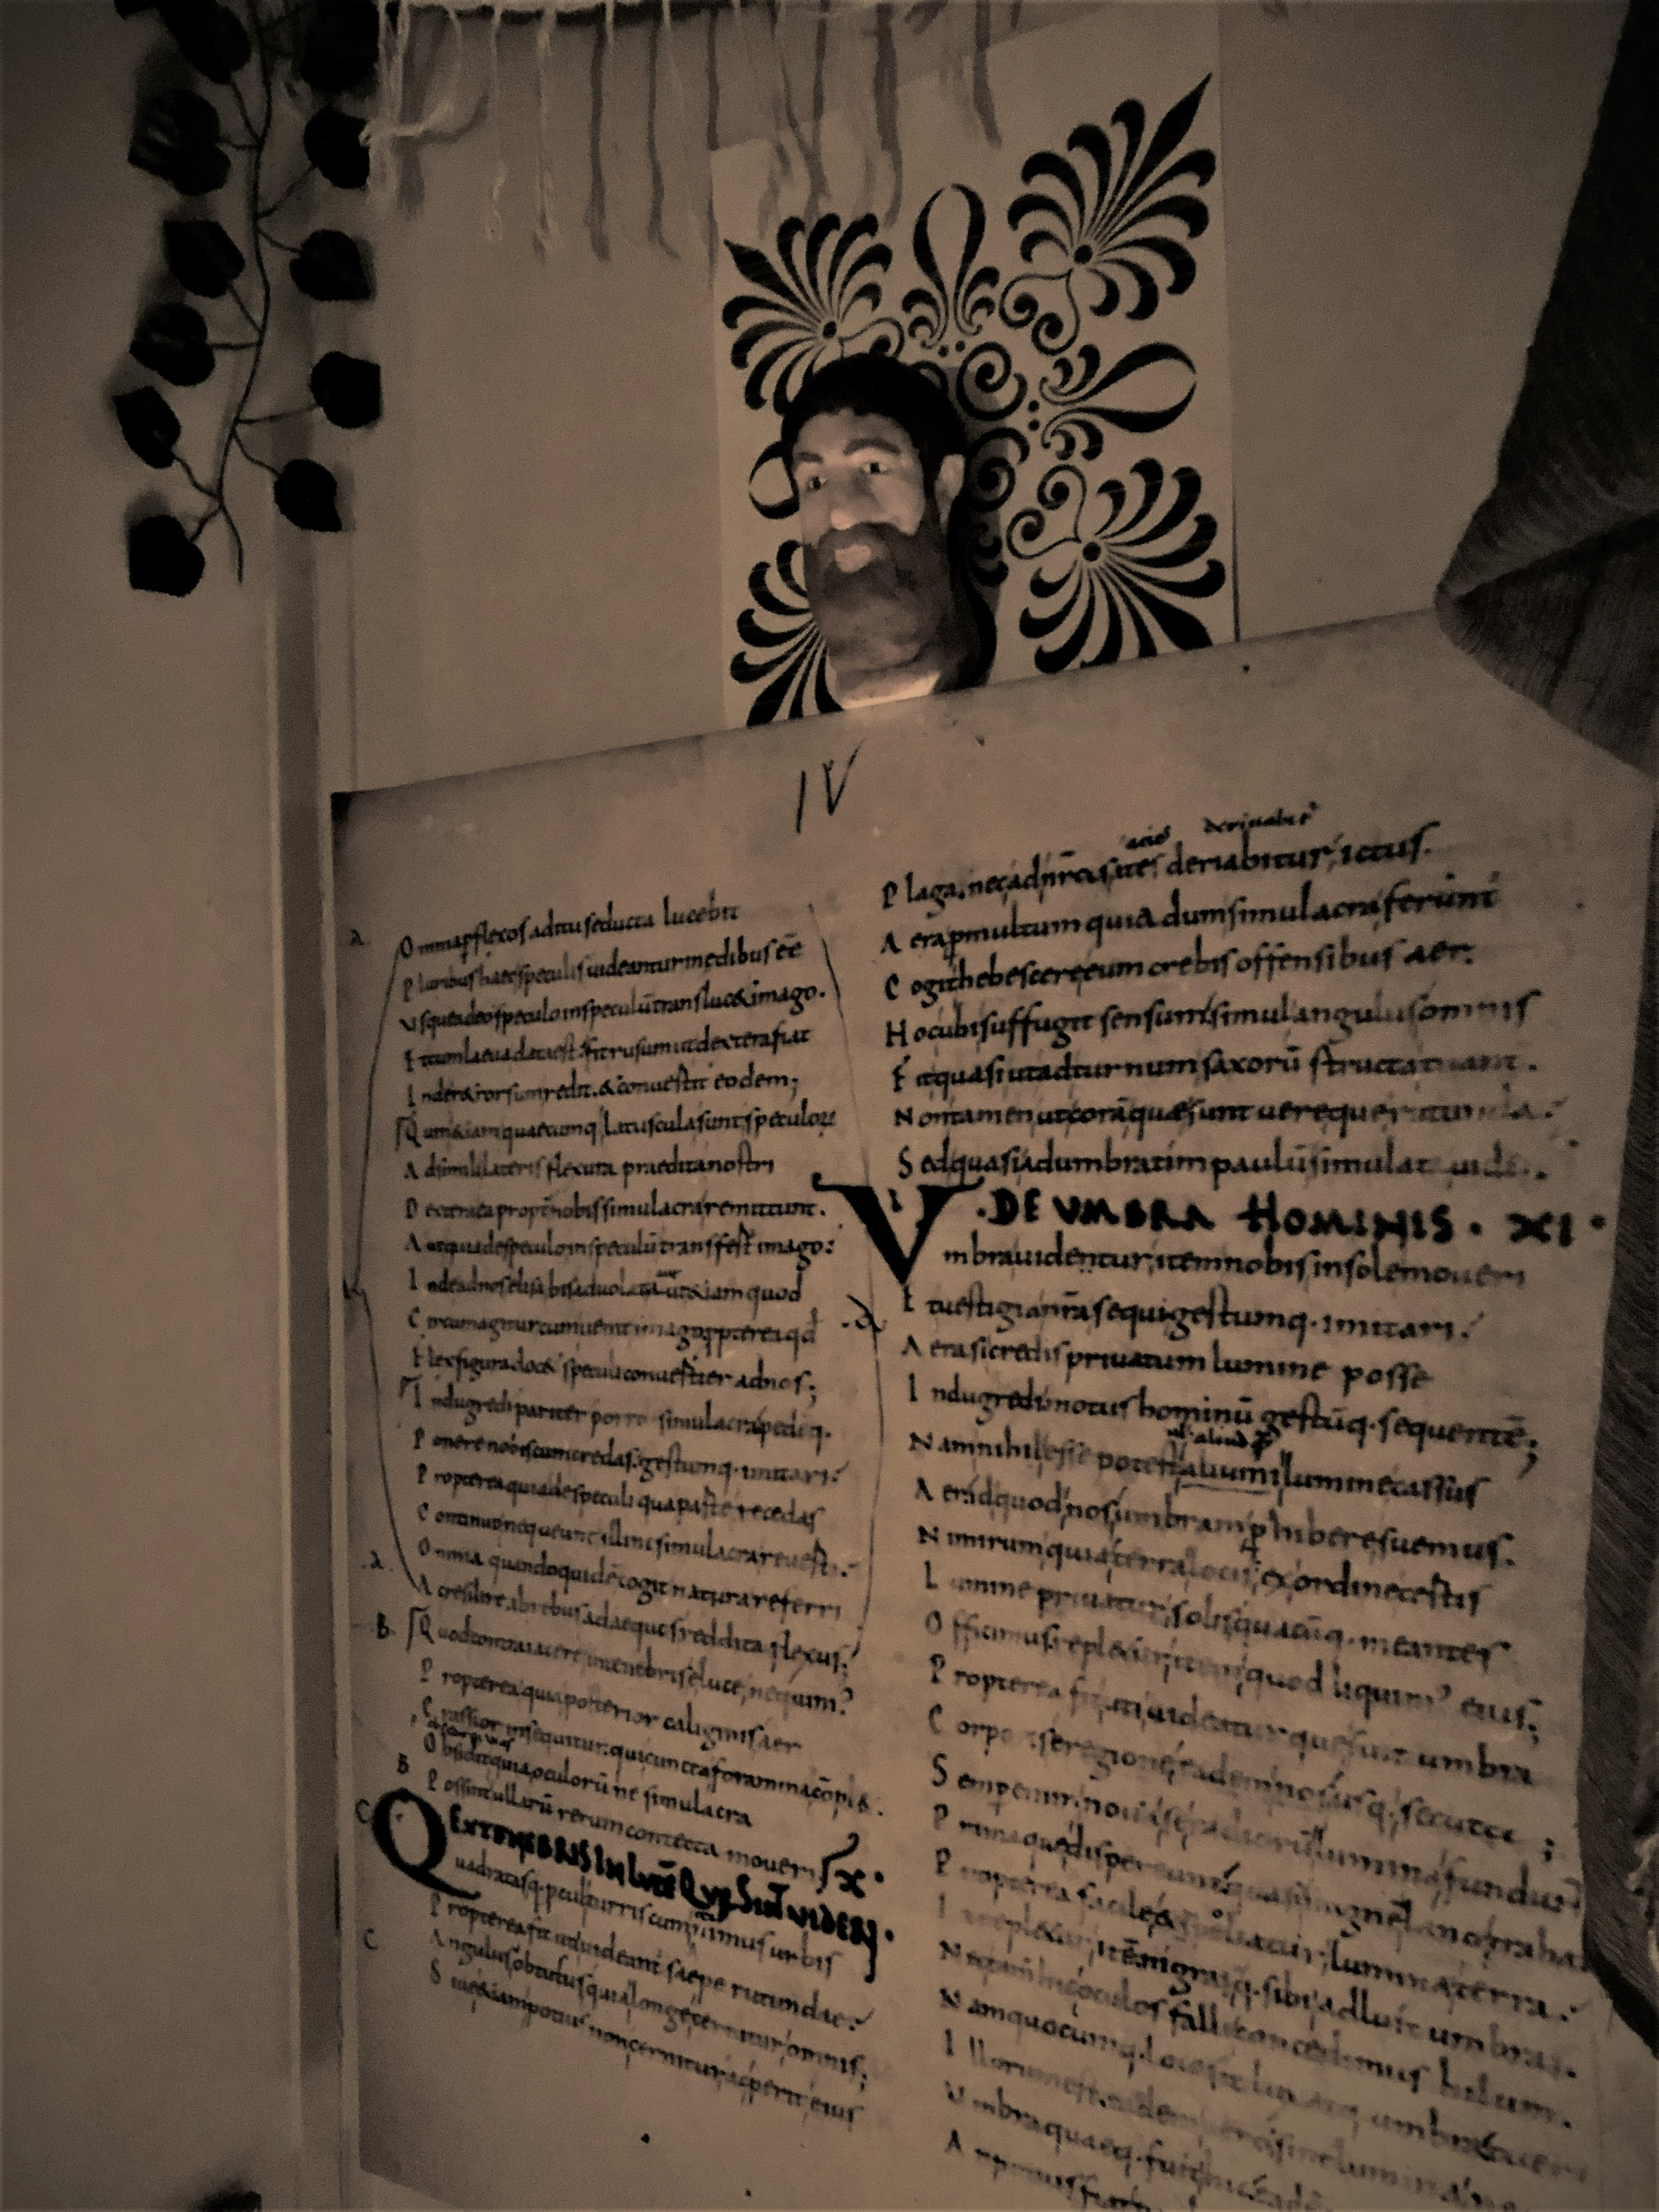 IV
Omnia p flexos aditus educta lucebit
Pluribus haec speculis uideantur in ędibus eē
Usque adeo speculo in speculū translucet imago.
Et cum laeua data est fit rusum ut dextera fiat
Inde retrorsum redit & conuertit eodem;
Quin etiam quaecumq latuscula sunt speculorū
Adsimili lateris flexura praedita nostri
Dextera ea propt nobis simulacra remittunt.
Aut quia de speculo in speculū transfert imago:
Inde ad nos elisa bis aduolat aut etiam quod
Circum agitur cum uenit imago ppterea qd
Flexa figura docet speculi conuertier ad nos;
Indugredi pariter porro simulacra pedēq.
Ponere nobiscum credas gestumq. imitari
Propterea quia de speculi qua parte recedas
Continuo nequeunt illinc simulacra reuerti.
Omnia quandoquidē cogit natura referri
Ac resilire ab rebus ad aequos reddita flexus;
Quod contra facere in tenebris e luce nequim?
Propterea quia posterior caliginis aer
Crassior insequitur qui cuncta foramina cōplet.
Obsidit quia oculorū ne simulacra
Possint ullarū rerum coniecta moueri X.
EX TENEBRIS IN LUCE QUAE SUNT UIDERI.
Quadratasq. procul turris cum cernimus urbis
Propterea fit uti uideant saepe rutundae.
Angulus obtusus quia longe cernitur omnis;
Siue etiam potius non cernitur ac perit eius
acies deriuabit
Plaga nec ad nrās acies deriabitur ictus.
Aera p multum quia dum simulacra ferunt
Cogit hebescere eum crebis offensibus aer.
Hoc ubi suffugit sensum simul angulus omnis
Fit quasi ut ad turnum saxorū structa
Non tamen ut coram quae sunt uere que
Sed quasi adumbratim paulū simulat
DE UMBRA HOMINIS. XI.
Umbra uidentur item nobis in sole moueri
Et uestigia nrā sequi gestumq. imitari.
Aera si credis priuatum lumine posse
Indugredi motus hominū gestūq. sequentē;
Nam nihil esse potest alium lumine cassus
Aer id quod nos umbram p hibere suemus.
Nimirum quia terra locis ex ordine certis
Lumine priuatur solis quacūq. meantes
Officimus repletur item quod liquim? eius;
Propterea fit uti uideatur que fuit umbra
Corporis e regione eadem nos usq. secuta;
Semper enim noua se radiorū lumina fundunt
Primaque dispereunt quasi in ignē lana trahatur
Propterea facile & spoliatur lumine terra.
Et repletur itē nigrasq. sibi adluit umbras.
Nec tamen hic oculos falli concedimus hilum.
Nam quocumq. loco sit lux atq. umbra tueri
Illorum est
Umbraquaeq. fuit hic eadē
An potius fiat